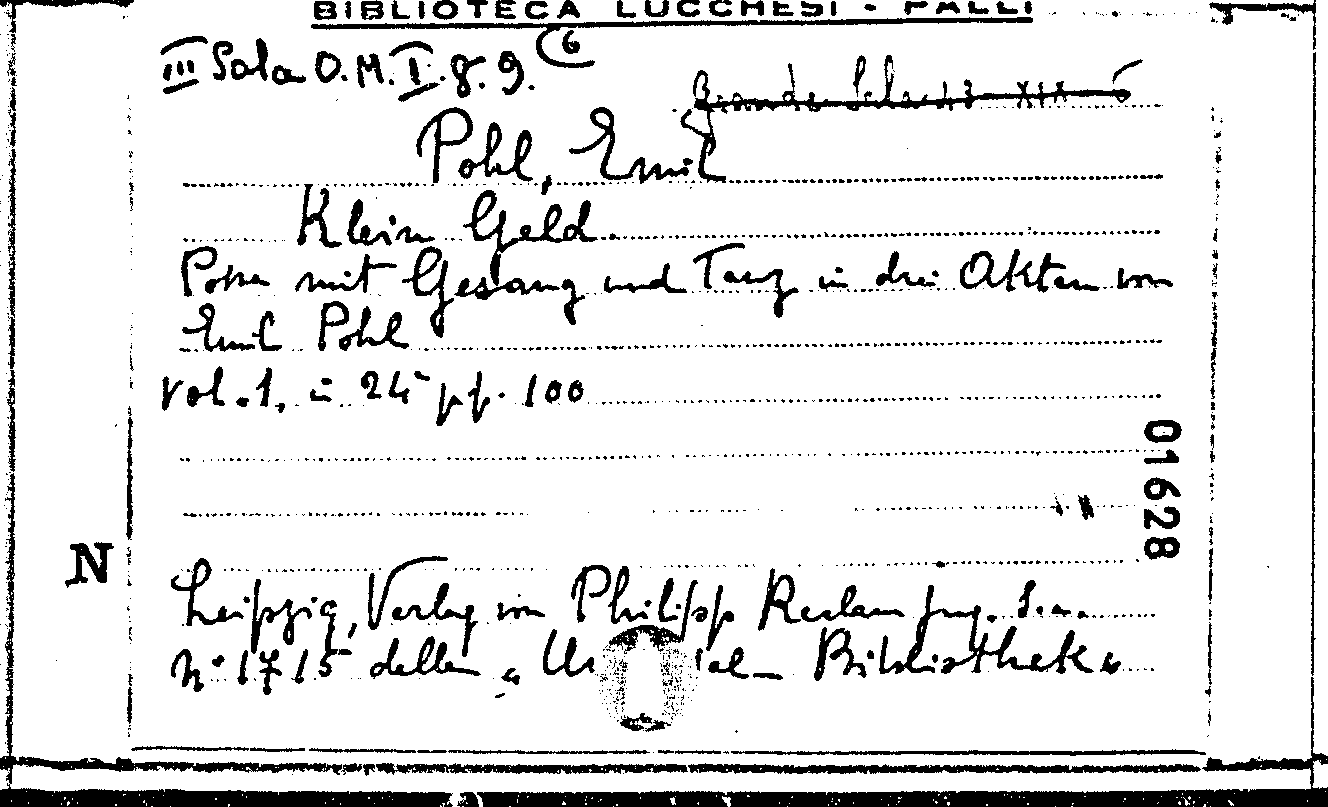 BIBLIOTECA LUCCHESI - PALLI
III Sala O.M.I.8.9. (6
Grande Sala 43 XIX 6
Pohl, Emil
Klein Geld.
Posse mit Gesang und Tanz in drei Akten von
Emil Pohl
vol. 1, in 24° pp. 100
01628
N
Leipzig, Verlag von Philipp Reclam jun. s.a.
N° 1715 della „ Un al- Bibliothek "